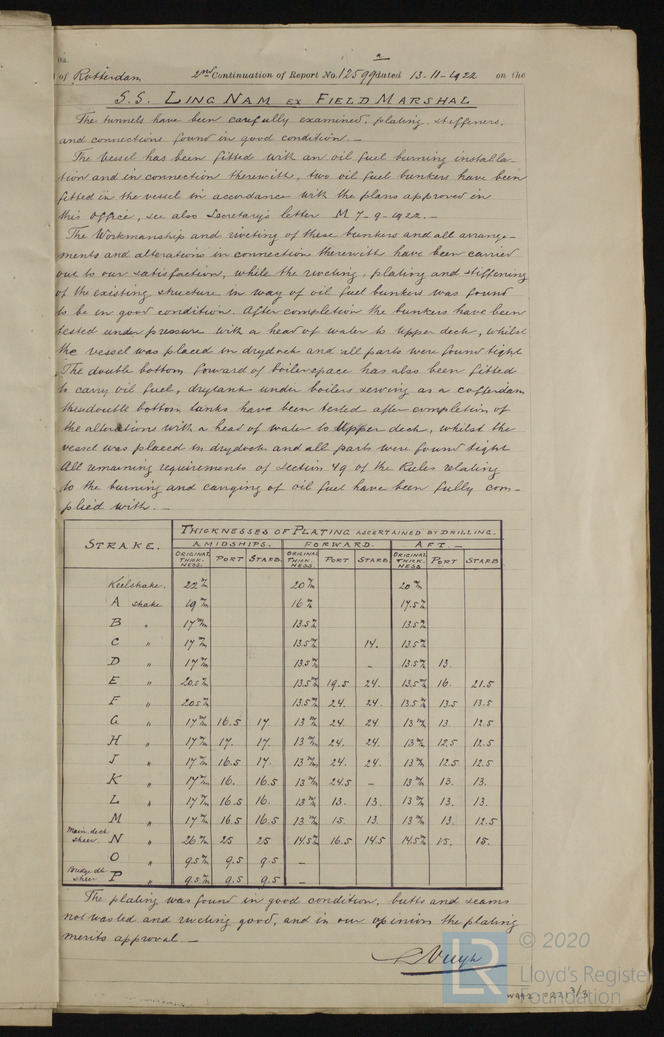 of Rotterdam 2nd Continuation of Report No. 12599a dated 13-11-1922 on the
S.S. LING NAM EX FIELD MARSHAL
The tunnels have been carefully examined, plating, stiffeners,
and connections found in good condition. —
The vessel has been fitted with an oil fuel burning installa-
tion and in connection therewith, two oil fuel bunkers have been
fitted in the vessel in accordance with the plans approved in
this office, see also Secretary's letter M 7-9-1922. —
The Workmanship and riveting of these bunkers and all arrange-
ments and alterations in connection therewith have been carried
out to our satisfaction, while the riveting, plating and stiffening
of the existing structure in way of oil fuel bunkers was found
to be in good condition. After completion the bunkers have been
tested under pressure with a head of water to upper deck, whilst
the vessel was placed in drydock and all parts were found tight
The double bottom forward of boilerspace has also been fitted
to carry oil fuel, drytank under boilers serving as a cofferdam
these double bottom tanks have been tested after completion of
the alterations with a head of water to Upper deck, whilst the
vessel was placed in drydock and all parts were found tight
All remaining requirements of section 49 of the Rules relating
to the burning and carrying of oil fuel have been fully com-
plied with. —
STRAKE. THICKNESSES OF PLATING ASCERTAINED BY DRILLING.
AMIDSHIPS. FORWARD. AFT. —
ORIGINAL THICKNESS. PORT STARB. ORIGINAL THICKNESS. PORT STARB. ORIGINAL THICKNESS PORT STARB
Keelstrake. 22 m/m 20 m/m 20 m/m
A strake 19 m/m 16 m/m 17.5 m/m
B " 17 m/m 13.5 m/m 13.5 m/m
C " 17 m/m 13.5 m/m 14. 13.5 m/m
D " 17 m/m 13.5 m/m – 13.5 m/m 13.
E " 20.5 m/m 13.5 m/m 19.5 24. 13.5 m/m 16. 21.5
F " 20.5 m/m 13.5 m/m 24. 24. 13.5 m/m 13.5 13.5
G " 17 m/m 16.5 17. 13 m/m 24. 24 13 m/m 13. 12.5
H " 17 m/m 17. 17. 13 m/m 24. 24. 13 m/m 12.5 12.5
J " 17 m/m 16.5 17. 13 m/m 24. 24. 13 m/m 12.5 12.5
K " 17 m/m 16. 16.5 13 m/m 24.5 – 13 m/m 13. 13.
L " 17 m/m 16.5 16. 13 m/m 13. 13. 13 m/m 13. 13.
M " 17 m/m 16.5 16.5 13 m/m 15. 13. 13 m/m 13. 12.5
Main deck sheer N " 26 m/m 25 25 14.5 m/m 16.5 14.5 14.5 m/m 15. 15.
O " 9.5 m/m 9.5 9.5 –
Bridge dk sheer P " 9.5 m/m 9.5 9.5 –
The plating was found in good condition, butts and seams
not wasted and riveting good, and in our opinion the plating
merits approval. —
© 2020
LR
Lloyd's Register
Foundation